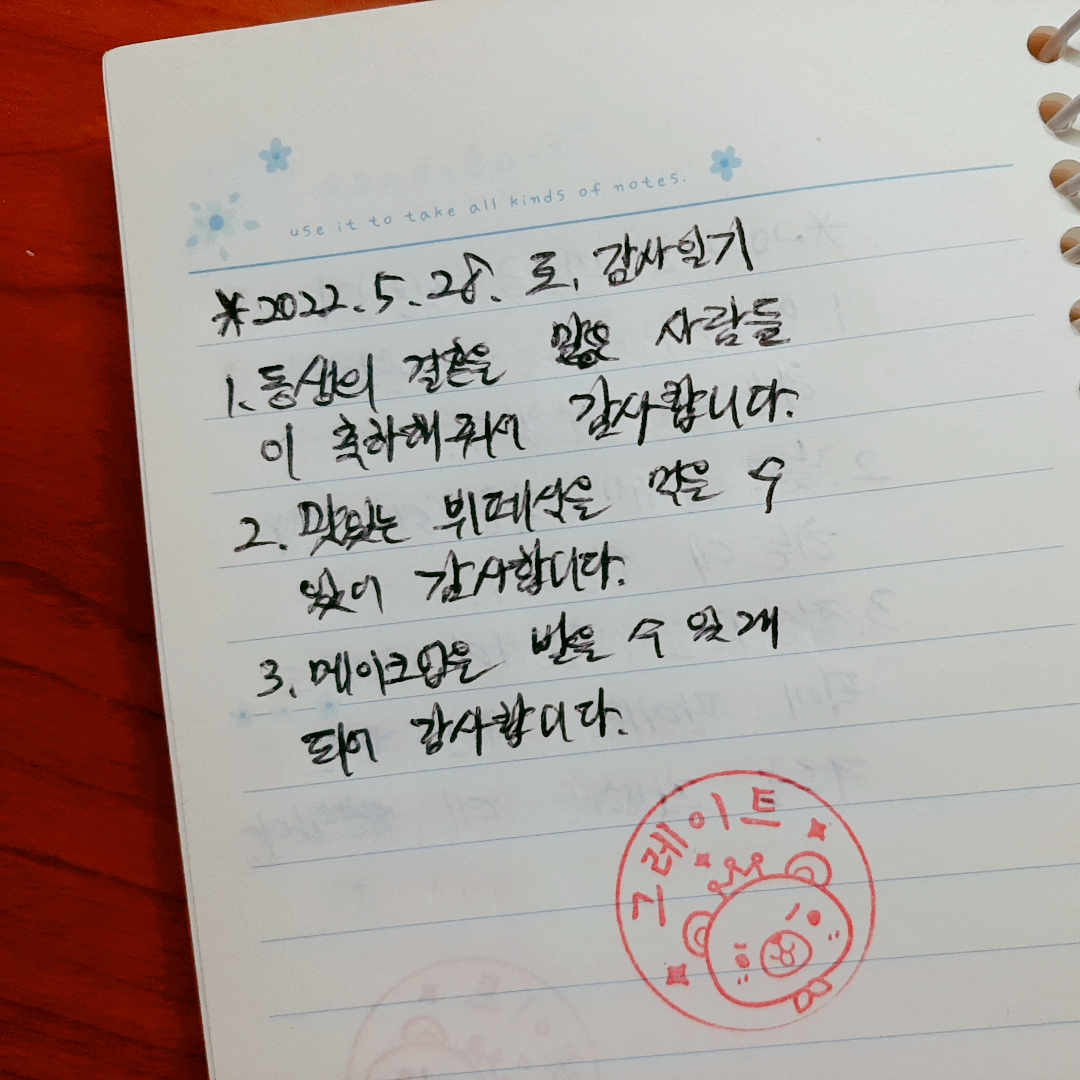 use it to take all kinds of notes.
*2022.5.28. 토. 감사일기
1. 동생의 결혼을 많은 사람들
이 축하해줘서 감사합니다.
2. 맛있는 뷔페식을 먹을 수
있어 감사합니다.
3. 메이크업을 받을 수 있게
되어 감사합니다.
그레이트